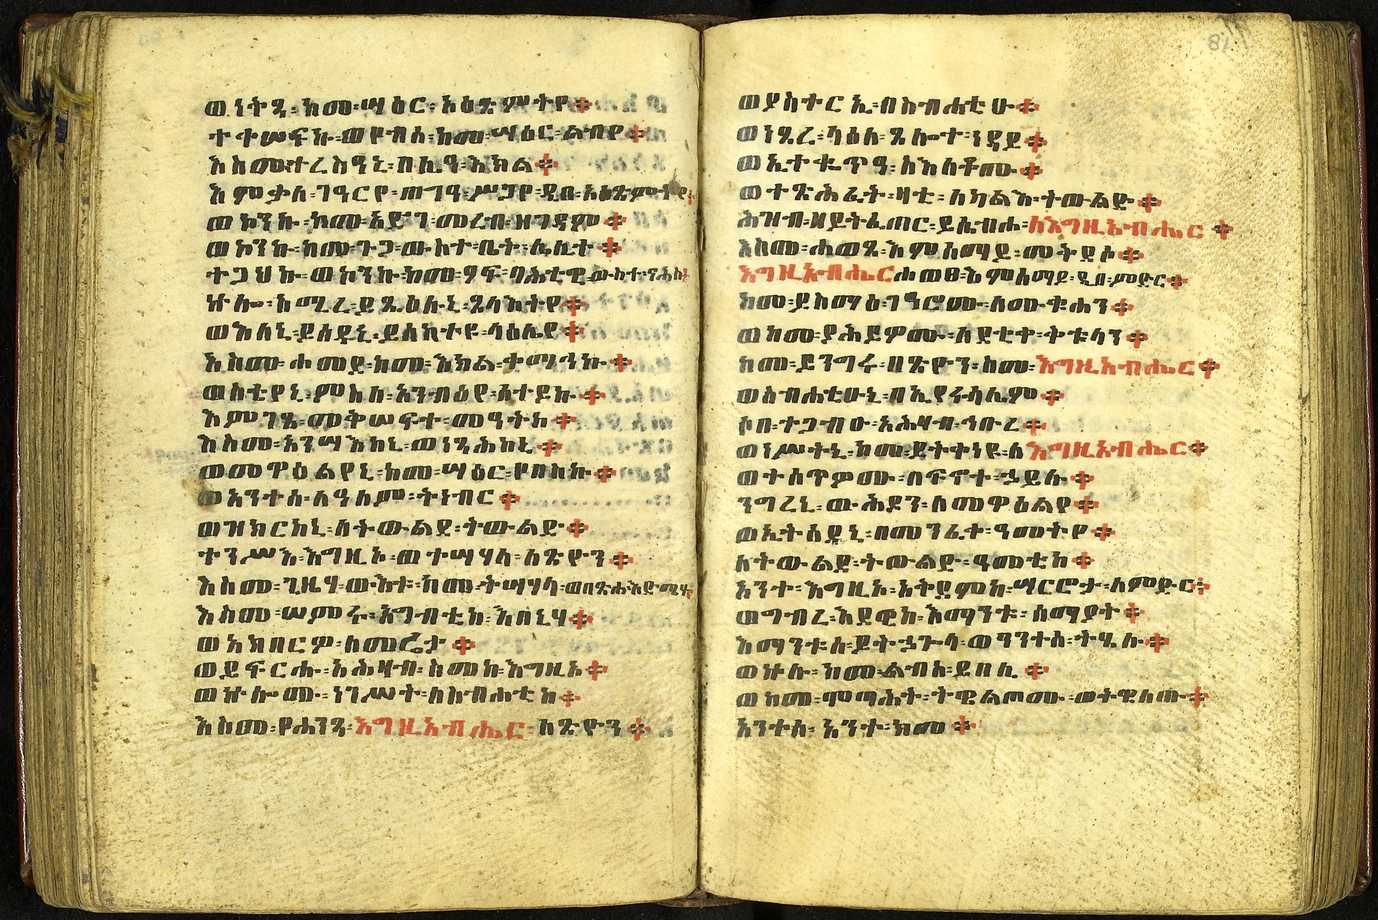 ወነትዓ፡ከመ፡ሣዕር፡አዕጽምትየ።
ተቀሠፍኩ፡ወየብሰ፡ከመ፡ሣዕር፡ልብየ።
እስመ፡ተረስዓኒ፡በሊዓ፡እክል።
እምቃለ፡ገዓርየ፡ጠግዓ፡ሥጋየ፡ዲበ፡አዕጽምትየ።
ወኮንኩ፡ከመ፡አድገ፡መረብ፡ዘገዳም።
ወኮንኩ፡ከመ፡ጉጋ፡ውስተ፡ቤት፡ሌሊተ።
ተጋህኩ፡ወኮንኩ፡ከመ፡ዖፍ፡ባሕቲታ፡ውስተ፡ናሕስ።
ኵሎ፡አሚረ፡ይጼዕሉኒ፡ጸላእትየ።
ወእለኒ፡ይሴድዱኒ፡ይሰክትዩ፡ላዕሌየ።
እስመ፡ሐመደ፡ከመ፡እክል፡ቃማሕኩ።
ወስቴየኒ፡ምስለ፡አንብዕየ፡ሰተይኩ።
እምገጸ፡መቅሠፍተ፡መዓትከ።
እስመ፡አንሣእከኒ፡ወነጻሕከኒ።
ወመዋዕልየኒ፡ከመ፡ሣዕር፡የበስኩ።
ወአንተሰ፡ለዓለም፡ትነብር።
ወዝክርከኒ፡ለትውልደ፡ትውልድ።
ተንሥእ፡እግዚኦ፡ወተሣሃላ፡ለጽዮን።
እስመ፡ጊዜሃ፡ውእቱ፡ከመ፡ትሣሃላ፡ወበጽሐ፡እድሜሃ።
እስመ፡ሠምሩ፡አግብቲከ፡እበኒሃ።
ወአክበርዎ፡ለመሬታ።
ወይፍርሑ፡አሕዛብ፡ስመከ፡እግዚአ።
ወኵሎሙ፡ነገሥት፡ለስብሐቲከ።
እስመ፡የሐንጻ፡እግዚአብሔር፡ለጽዮን።
81
ወያስተርኢ፡በስብሐቲሁ።
ወነጸረ፡ላዕለ፡ጸሎተ፡ነዳይ።
ወኢተቈጥዓ፡ስእለቶሙ።
ወተጽሕፈት፡ዛቲ፡ለካልእ፡ትውልድ።
ሕዝብ፡ዘይትፈጠር፡ይሴብሖ፡ለእግዚአብሔር።
እስመ፡ሐወጸ፡እምሰማይ፡መቅደሶ።
እግዚአብሔር፡ሐወፀ፡እምሰማይ፡ዲበ፡ምድር።
ከመ፡ይስማዕ፡ገዓሮሙ፡ለሙቁሐን።
ወከመ፡ያሕይዎሙ፡ለደቂቀ፡ቅቱላን።
ከመ፡ይንግሩ፡በጽዮን፡ስመ፡እግዚአብሔር።
ወስብሐቲሁኒ፡በኢየሩሳሌም።
ሶበ፡ተጋብዑ፡አሕዛብ፡ኅቡረ።
ወነገሥትኒ፡ከመ፡ይትቀነዩ፡ለእግዚአብሔር።
ወተሰጥዎሙ፡በፍኖተ፡ኃይሉ።
ንግረኒ፡ውሕዶን፡ለመዋዕልየ።
ወኢትሰደኒ፡በመንፈቀ፡ዓመትየ።
ለትውልደ፡ትውልድ፡ዓመቲከ።
አንተ፡እግዚኦ፡አቅደምከ፡ሣርሮታ፡ለምድር።
ወግብረ፡እደዊከ፡እማንቱ፡ሰማያት።
እማንቱሰ፡ይትኃጐላ፡ወአንተሰ፡ትሄሉ።
ወኵሉ፡ከመ፡ልብስ፡ይበሊ።
ወከመ፡ሞጣሕት፡ትዌልጦሙ፡ወይትዌለጡ።
አንተሰ፡አንተ፡ክመ።